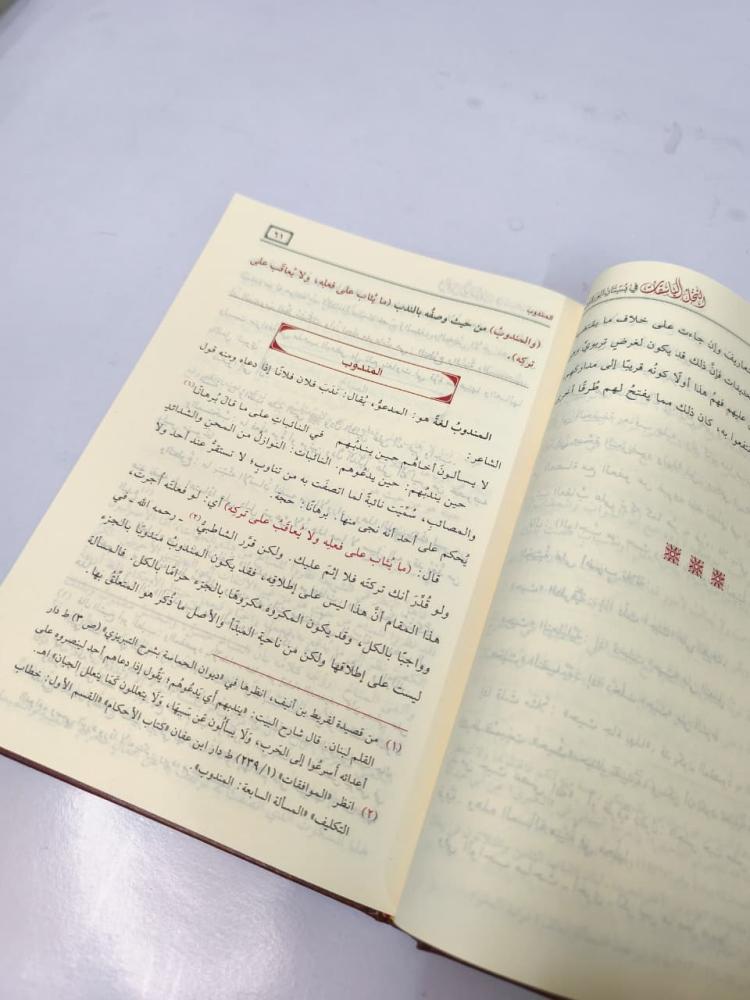 النخل الباسقات في بستان
تعاريف وإن جاءت على خلاف ما
فإنَّ ذلك قد يكون لغرض تربويٍّ
عليهم فهمُ هذا أولًا كونُه قريبًا إلى
به، كان ذلك مما يفتحُ لهم طُرقًا
المندوب
٦١
(والمندوبُ) من حيثُ وصفُه بالندب (ما يُثاب على فعلِهِ، وَلا يُعاقَب على
تركه).
المندوب
المندوبُ لغةً هو: المدعوُّ، يُقال: نَدَبَ فلان فلانًا إذا دعاه ومنه قول
الشاعر:
لا يسألونَ أخاهم حين يندبُهم في النائباتِ على ما قالَ بُرهانًا(١)
حين يندبُهم: حين يدعُوهم. النائبات: النوازلُ من المحنِ والشدائدِ
والمصائبِ، سُمِّيت نائبةً لما اتصفَت به من تناوبٍ؛ لا تستقرُّ عند أحدٍ ولا
يُحكم على أحدٍ أنه نجى منها. برهانًا: حجةً.
قال: (ما يُثاب على فعلِه ولا يُعاقَب على تركِه) أي: لو فعلتَه أُجرتَ،
ولو قُدِّرَ أنك تركتَه فلا إثمَ عليك. ولكن قرَّر الشاطبيُّ(٢) - رحمه الله - في
هذا المقام أنَّ هذا ليس على إطلاقِه، فقد يكون المندوبُ مندوبًا بالجزءِ
وواجبًا بالكل، وقد يكون المكروه مكروهًا بالجزء حرامًا بالكل. فالمسألة
ليست على إطلاقها ولكن من ناحيةِ المبدَأ والأصلِ ما ذُكر هو المتعلِّقُ بها.
(١) من قصيدة لقريط بن أنيف، انظرها في «ديوان الحماسة بشرح التبريزي» (ص ٣) ط دار
القلم لبنان. قال شارح البيت: «يندبهم أي يَدعُوهُم؛ يقُول إذا دعاهم أحد لينصروه على
أعدائه أسرعُوا إلى الحَرب، وَلَا يسألُون عَن سَببهَا، وَلَا يتعللون كَمَا يتعلل الجبان» اهـ.
(٢) انظر «الموافقات» (٢٣٩/١) ط دار ابن عفان «كتاب الأحكام» «القسم الأول: خطاب
التكليف» «المسألة السابعة: المندوب».